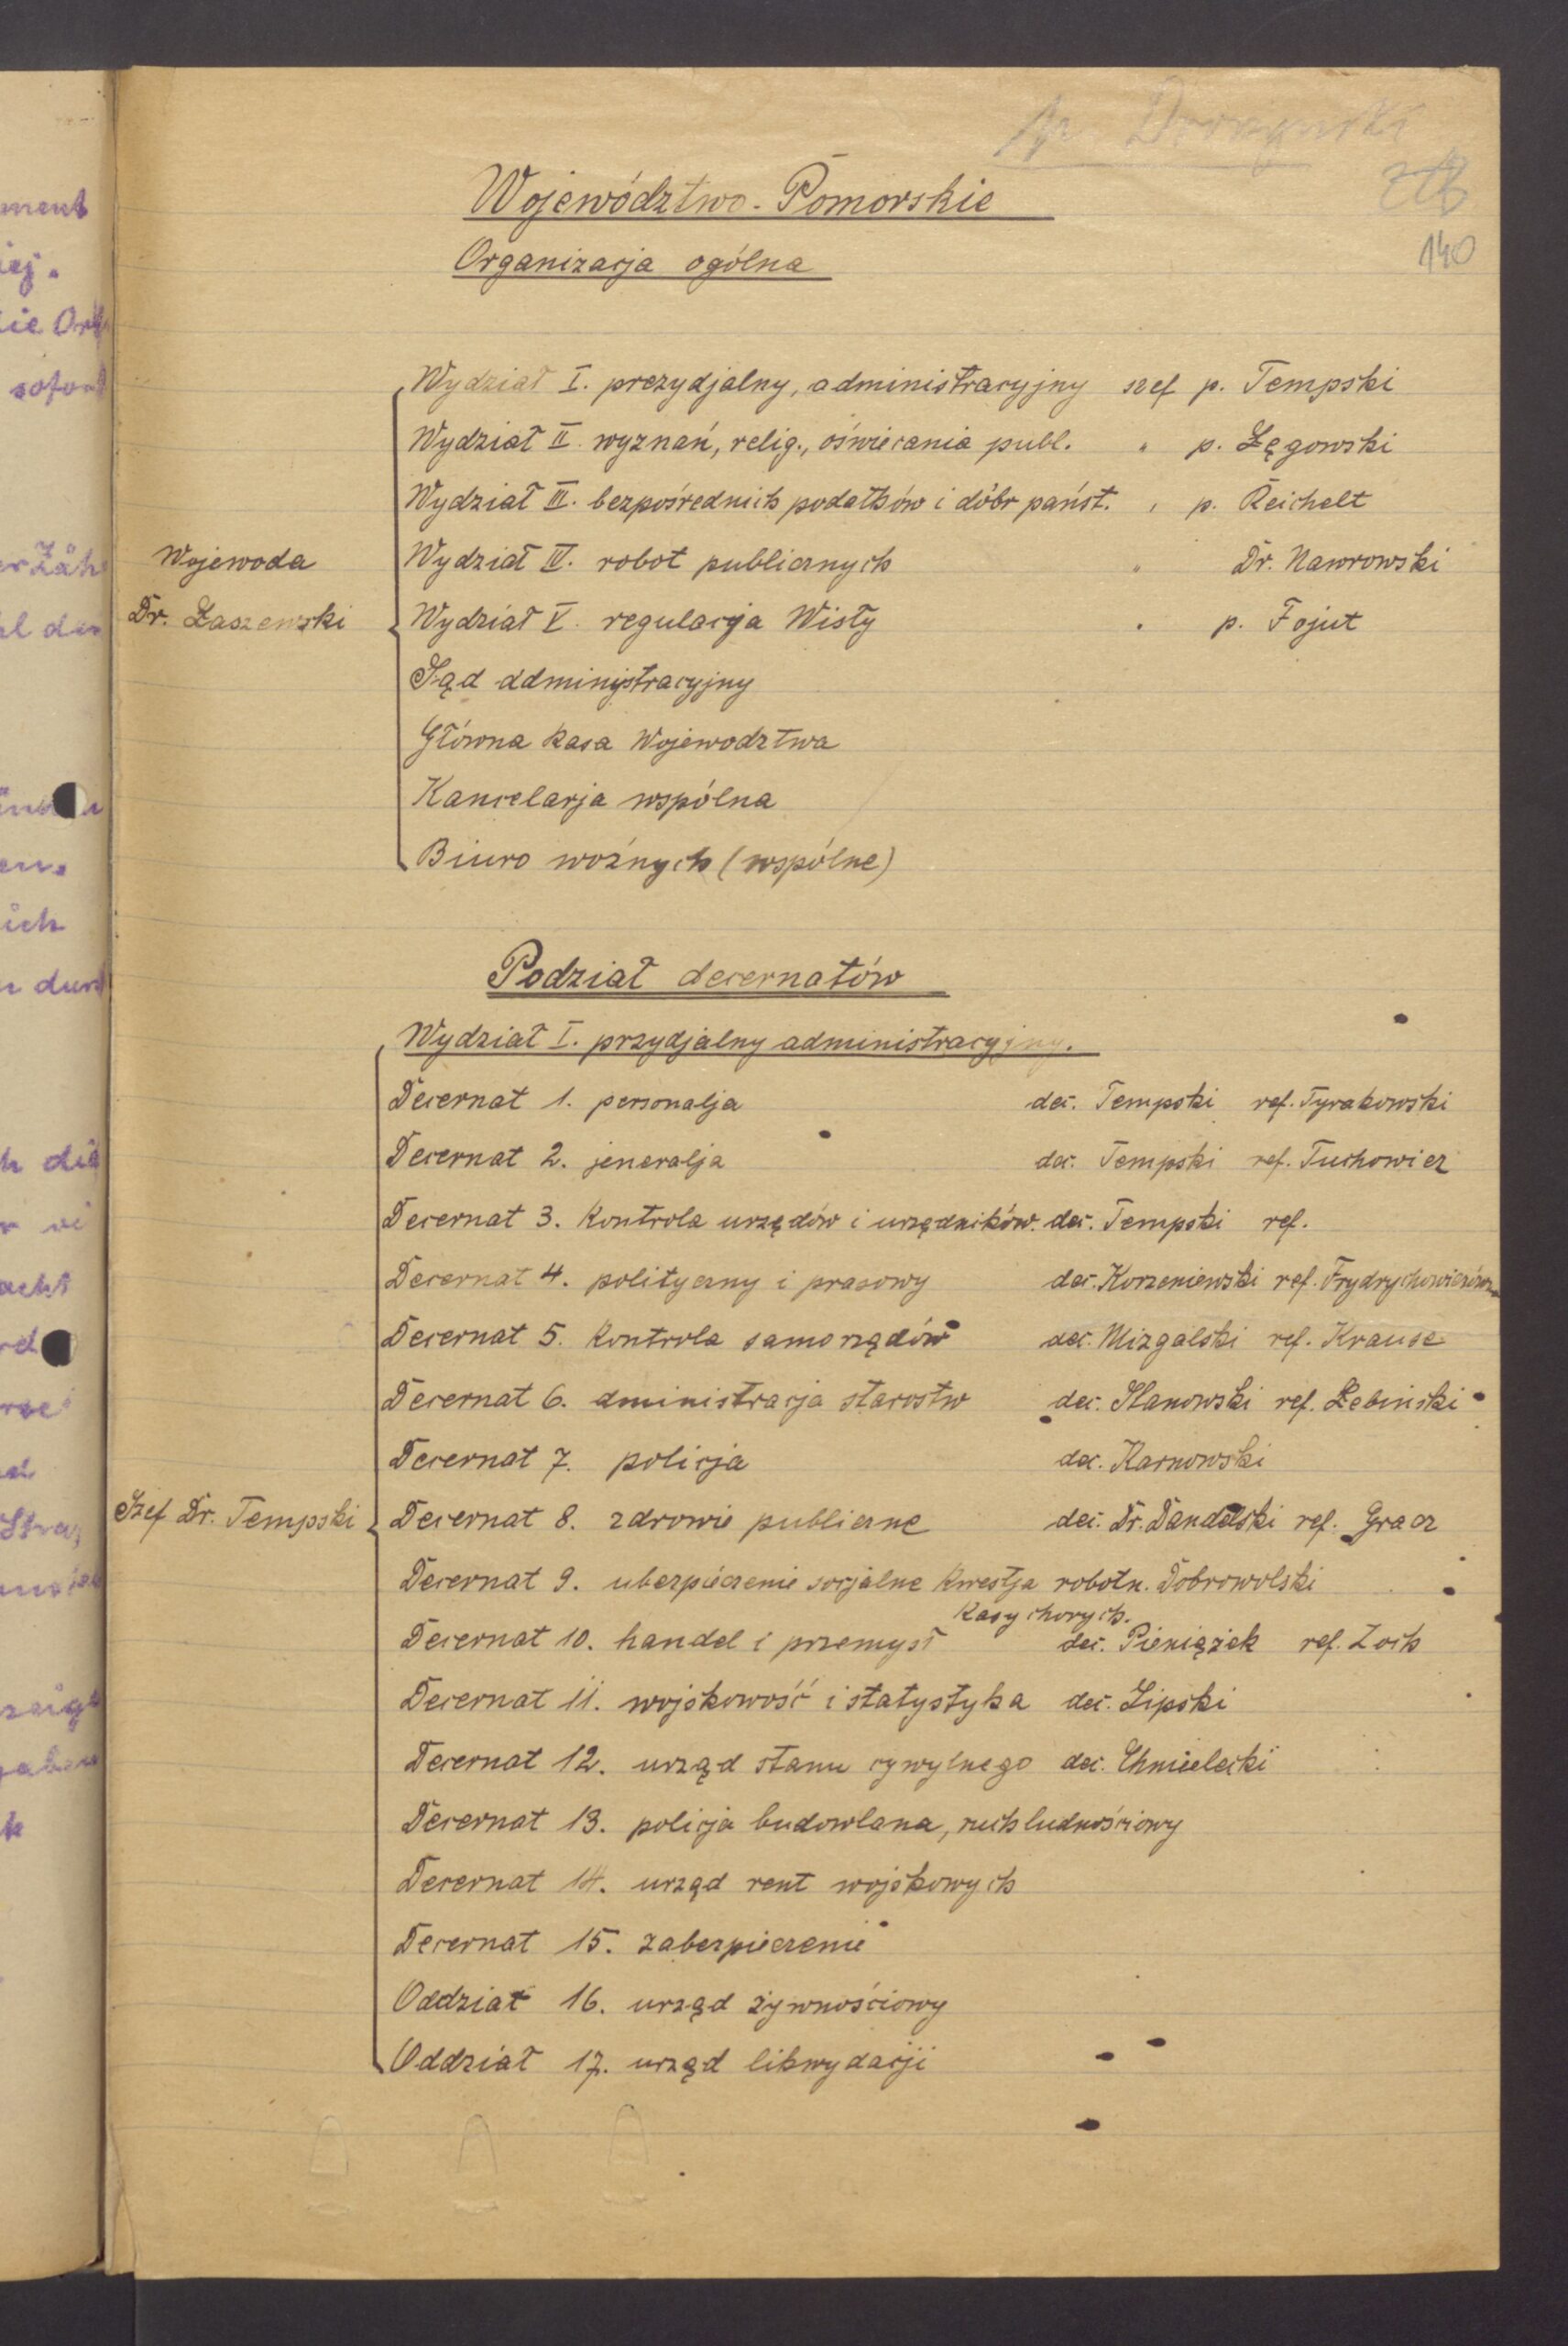 Województwo-Pomorskie
140
Organizacja ogólna
Wydział I. prezydjalny, administracyjny szef p. Tempski
Wydział II. wyznań, relig., oświecania publ. " p. Łęgowski
Wydział III. bezpośrednich podatków i dóbr państ. " p. Reichelt
Wojewoda
Wydział IV. robot publicznych " Dr. Nawrowski
Dr. Łaszewski
Wydział V. regulacja Wisły " p. Fojut
Sąd administracyjny
Główna kasa Wojewodztwa
Kancelarja wspólna
Biuro woźnych (wspólne)
Podział decernatów
Wydział I. przydjalny administracyjny.
Decernat 1. personalja dec. Tempski ref. Tyrakowski
Decernat 2. jeneralja dec. Tempski ref. Tuchowicz
Decernat 3. Kontrola urzędów i urzędników. dec. Tempski ref.
Decernat 4. polityczny i prasowy dec. Korzeniewski ref. Frydrychowiczówna
Decernat 5. Kontrola samorządów dec. Mizgalski ref. Krause
Decernat 6. administracja starostw dec. Stanowski ref. Łebinski
Decernat 7. policja dec. Karnowski
Szef Dr. Tempski
Decernat 8. zdrowie publiczne dec. Dr. Dandelski ref. Gracz
Decernat 9. ubezpieczenie socjalne kwestja robotn. Dobrowolski
Kasy chorych.
Decernat 10. handel i przemysł dec. Pieniążek ref. Zoch
Decernat 11. wojskowość i statystyka dec. Lipski
Decernat 12. urząd stanu cywylnego dec. Chmielecki
Decernat 13. policja budowlana, ruch ludnościowy
Decernat 14. urząd rent wojskowych
Decernat 15. zabezpieczenie
Oddział 16. urząd żywnościowy
Oddział 17. urząd likwydacji